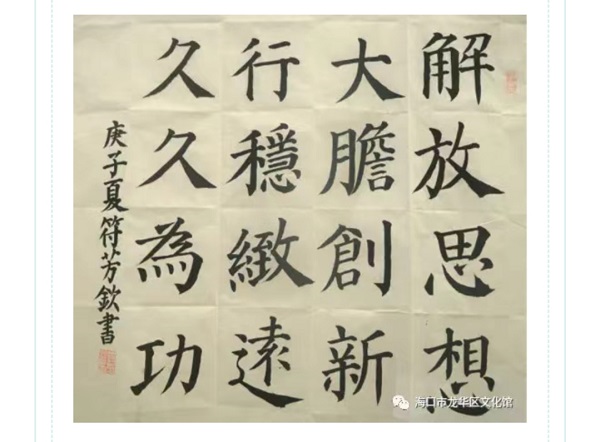 解放思想
大膽創新
行穩緻遠
久久為功
庚子夏符芳欽書
海口市龙华区文化馆